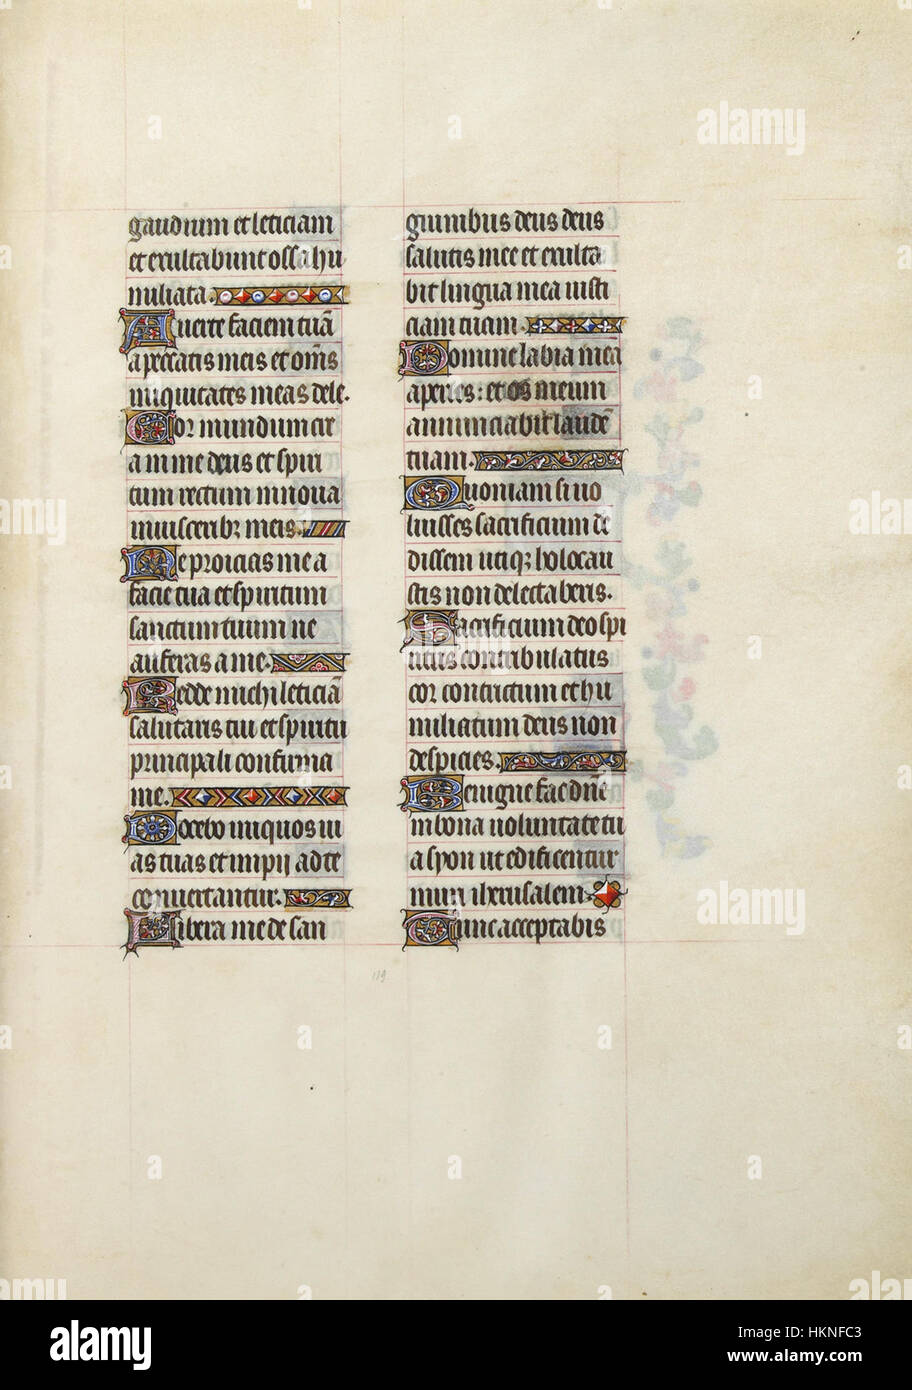 gaudium et leticiam
et exultabunt ossa hu
miliata.
Auerte faciem tuā
a peccatis meis et om̄s
iniquitates meas dele.
Cor mundum cre
a in me deus et spiri
tum rectum innoua
in uisceribꝫ meis.
Ne proicias me a
facie tua et spiritum
sanctum tuum ne
auferas a me.
Redde michi leticiā
salutaris tui et spiritu
principali confirma
me.
Docebo iniquos ui
as tuas et impij ad te
conuertantur.
Libera me de san
guinibus deus deus
salutis mee et exulta
bit lingua mea iusti
ciam tuam.
Domine labia mea
aperies: et os meum
annunciabit laudē
tuam.
Quoniam si uo
luisses sacrificium de
dissem utiqꝫ holocau
stis non delectaberis.
Sacrificium deo spi
ritus contribulatus
cor contrictum et hu
miliatum deus non
despicies.
Benigne fac dn̄e
in bona uoluntate tu
a syon ut edificentur
muri iherusalem
Tunc acceptabis
119
a alamy
alamy
Image ID: HKNFC3
www.alamy.com